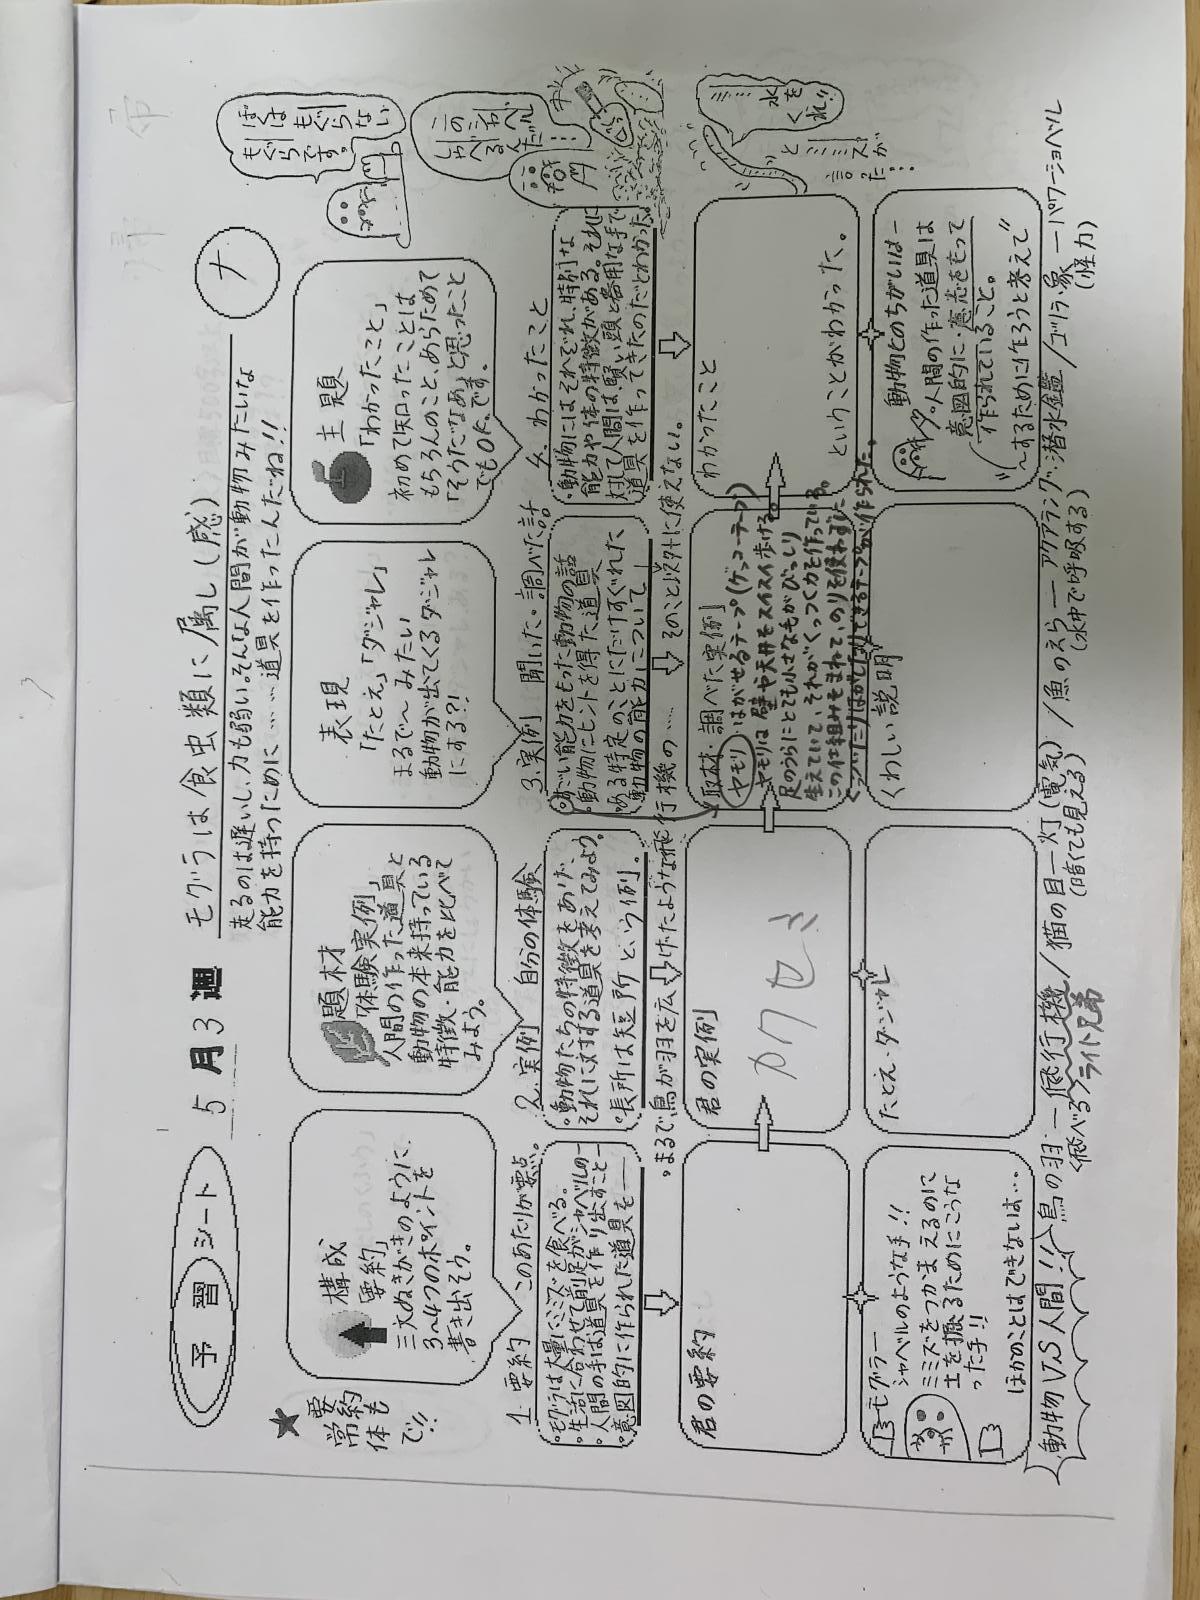 予習シート
5月3週
モグラは食虫類に属し(感)
ナ
走るのは遅いし、力も弱い。そんな人間が動物みたいな
能力を持つために……道具を作ったんだね!!
★要約
常体も
で!!
構成
「要約」
三文ぬきがきのように、
3~4つのポイントを
書き出そう。
題材
「体験実例」
人間の作った道具と
動物の本来持っている
特徴・能力を比べて
みよう。
表現
「たとえ」「ダジャレ」
まるで~みたい
動物が出てくるダジャレ
にする?!
主題
「わかったこと」
初めて知ったことは
もちろんのこと、あらためて
「そうだなあ」と思ったこと
でもOKです。
ぼくは もぐらない
もぐらです。
このシャベル
しゃべるんだ…
1. 要約 このあたりが要点。
・モグラは大量にミミズを食べる。
・生活に合わせて前足がシャベルの―
・人間の手は道具を作り出すこと―
・意図的に作られた道具を―
2. 実例 自分の体験
・動物たちの特徴をあげ、
それに対する道具を考えてみよう。
・長所は短所という例。
3. 実例 聞いた・調べた話
・すごい能力をもった動物の話
・動物にヒントを得た道具
・ある特定のことにだけすぐれた
動物の能力について―
4. わかったこと
・動物にはそれぞれ、特別な
能力や体の特徴がある。それに
対して人間は、賢い頭と器用な手で
道具を作ってきたのだとわかった。
・まるで鳥が羽を広げたような飛行機の……
そのこと以外に使えない。
君の要約
君の実例
取材・調べた実例
ヤモリ はがせるテープ(ゲッコーテープ)
ヤモリは壁や天井をスイスイ歩ける。
足のうらにとても小さなもがびっしり
生えていて、それがくっつく力を作っている。
この仕組みをまねて、のりを使わずに
くっついたりはがしたりできるテープが作られた。
わかったこと
ということがわかった。
水を
くれ!!
とミミズが
言った…?
モグラ―
シャベルのような手!!
ミミズをつかまえるのに
土を掘るためにこうな
った手!!
ほかのことはできないは…
たとえ・ダジャレ
くわしい説明
動物とのちがいは―
・人間の作った道具は
意図的に・意志をもって
作られていること。
"~するために作ろうと考えて"
動物VS人間!!
鳥の羽―飛行機/猫の目―灯(電気)/魚のえら―アクアラング、潜水艦/ゴリラ、象―パワーショベル
(飛べる) ライト兄弟 (暗くても見える) (水中で呼吸する) (怪力)